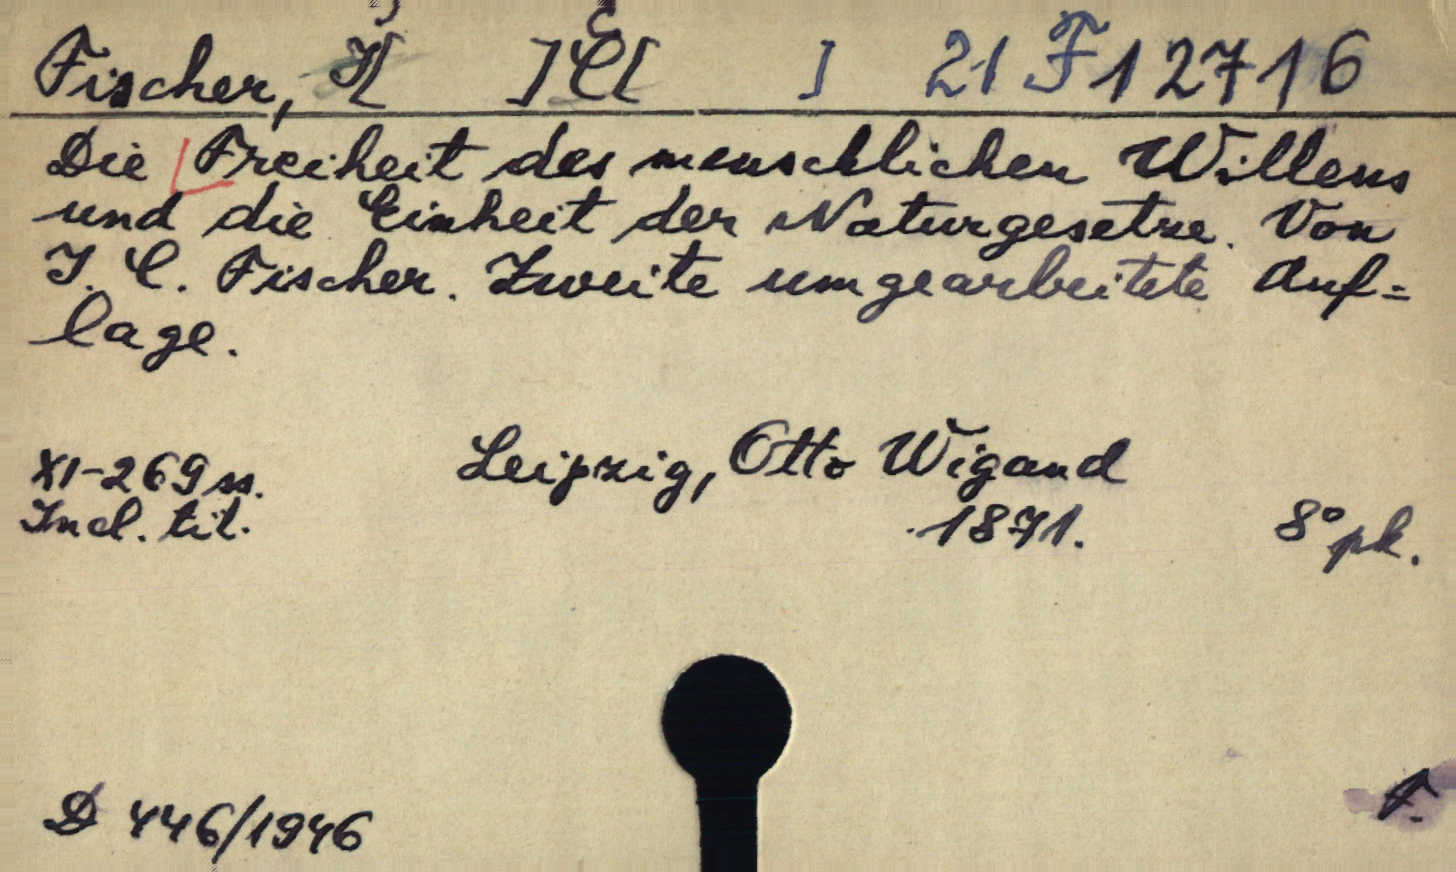 Fischer, J[ ] C[ ] 21 F 12716
Die Freiheit des menschlichen Willens
und die Einheit der Naturgesetze. Von
J. C. Fischer. Zweite umgearbeitete Auf=
lage.
Leipzig, Otto Wigand
XI-269 ss.
Incl. tit.
1871.
8° pk.
D 446/1946
F.